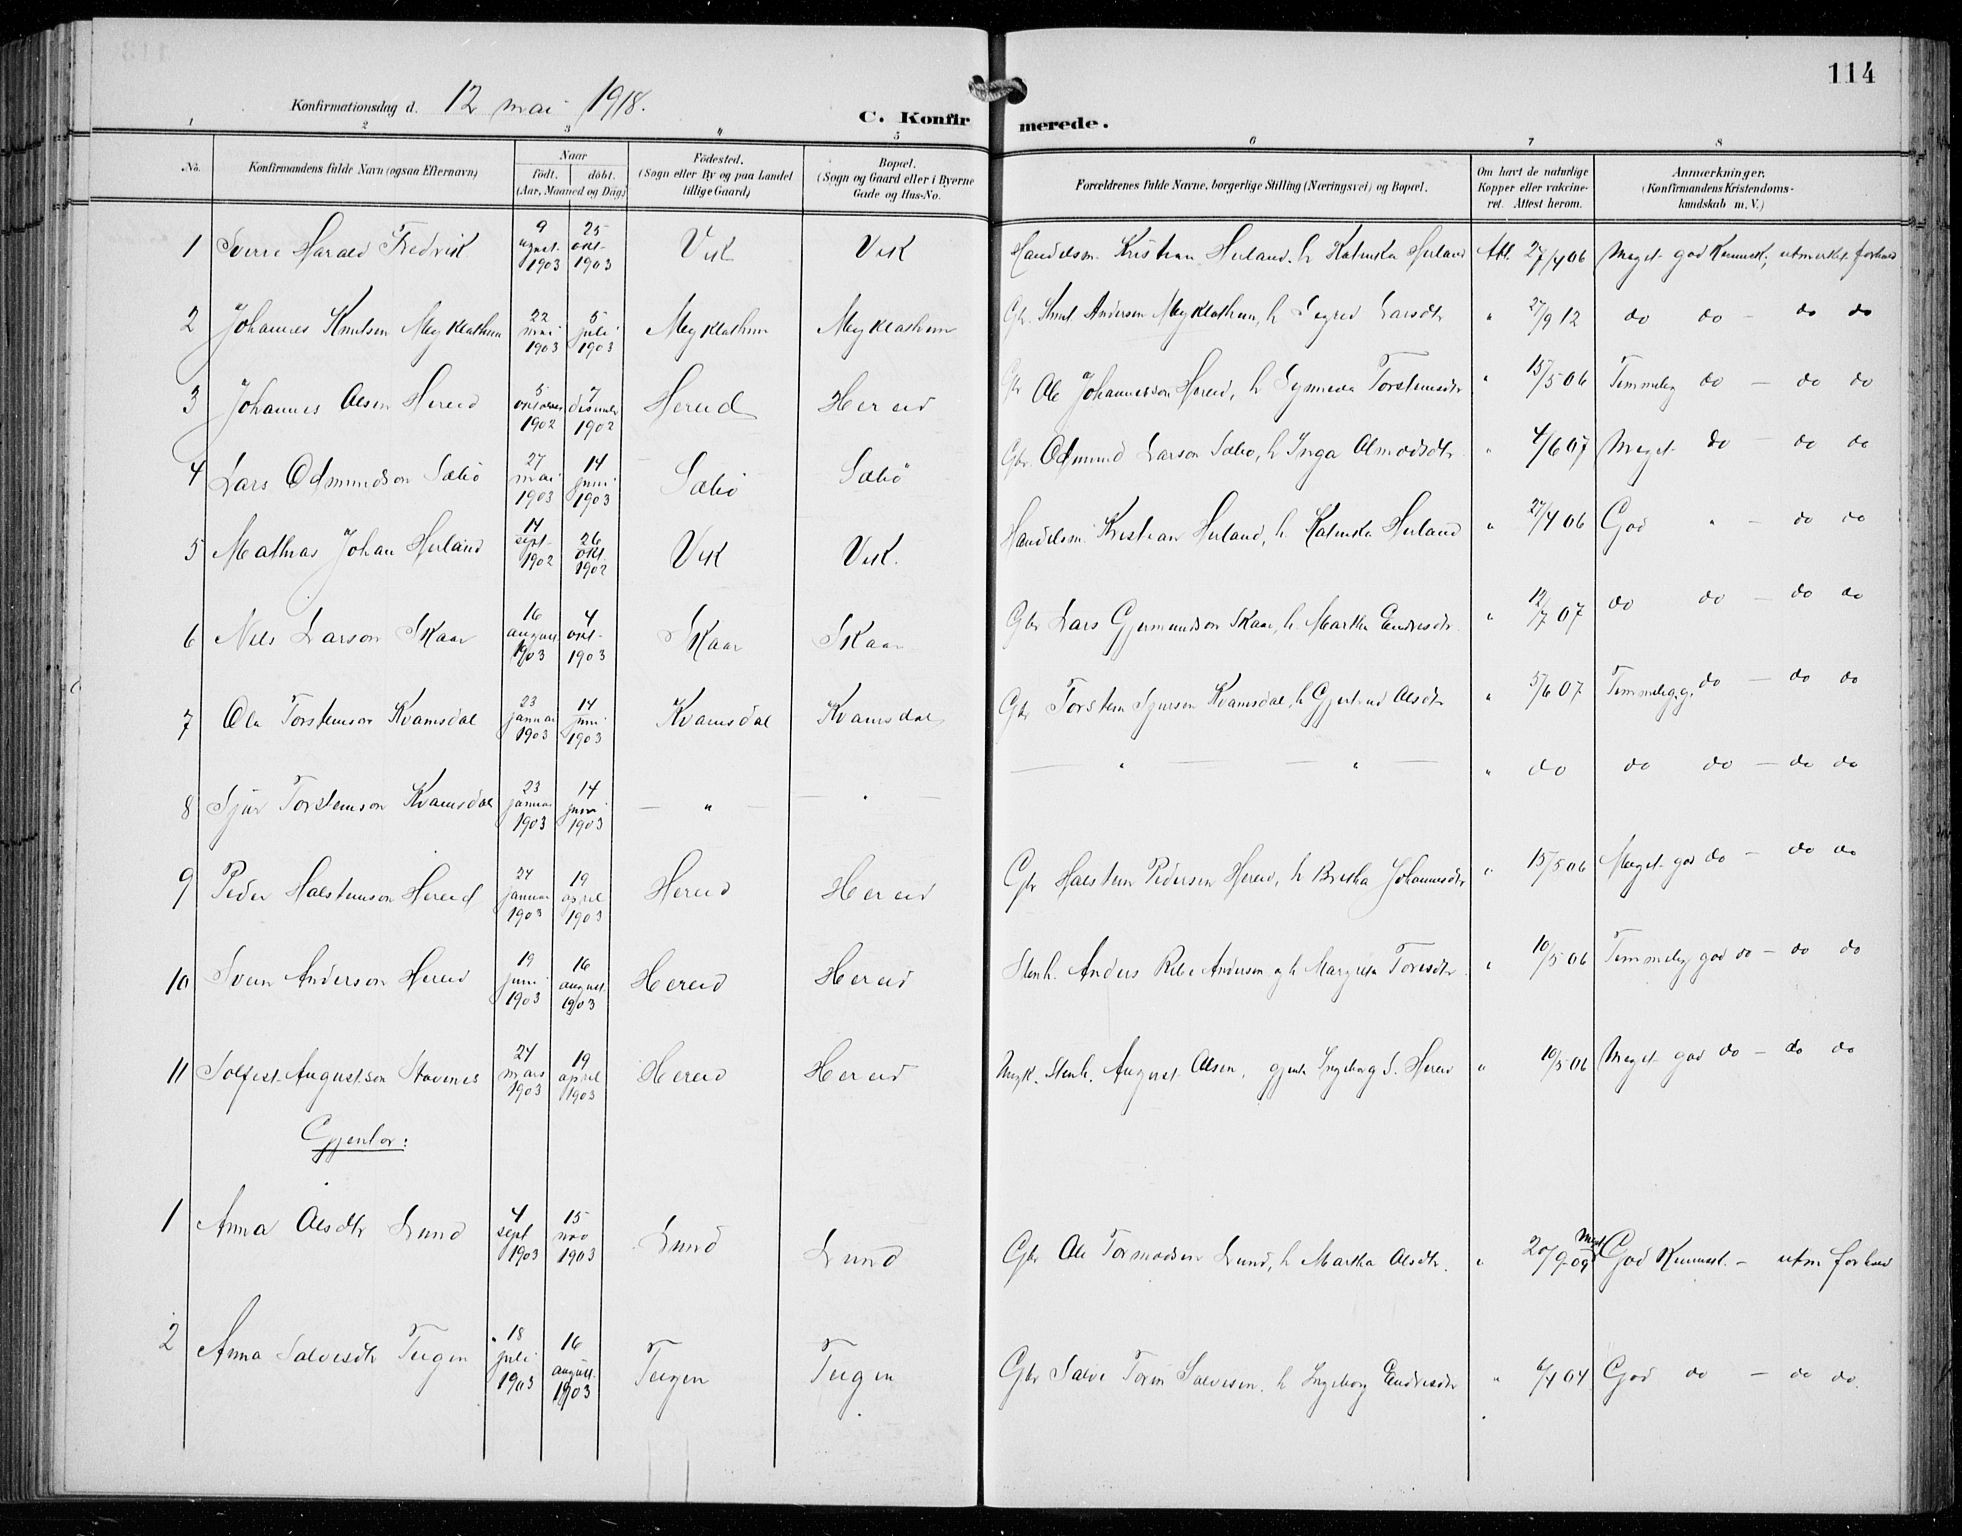 114
Konfirmationsdag d. 12 mai 1918.
C. Konfirmerede.
1 2 3 4 5 6 7 8
No. Konfirmandens fulde Navn (ogsaa Efternavn) Naar født. døbt. (Aar, Maaned og Dag) Fødested. (Sogn eller By og paa Landet tillige Gaard) Bopæl. (Sogn og Gaard eller i Byerne Gade og Hus-No. Forældrenes fulde Navne, borgerlige Stilling (Næringsvei) og Bopæl. Om havt de naturlige Kopper eller vakcineret. Attest herom. Anmærkninger. (Konfirmandens Kristendomskundskab m. V.)
1 Sverre Harald Fredrik 9 august 1903 25 okt. 1903 Vik Vik Handelsm. Kristian Herland, h. Katinka Herland Att. 27/4 06 Meget god Kunnsk., utmerket forhold
2 Johannes Knutson Myklathun 22 mai 1903 5 juli 1903 Myklathun Myklathun Gbr. Knut Anderson Myklathun, h. Sigrid Larsdtr " 27/9 12 do do - do do
3 Johannes Olsen Hereid 5 oktober 1902 7 desember 1902 Hereid Hereid Gbr Ole Johannesson Hereid, h Synneva Torsteinsdtr " 15/5 06 Temmelig do - do do
4 Lars Odmundson Sæbø 27 mai 1903 14 juni 1903 Sæbø Sæbø Gbr. Odmund Larson Sæbø, h Inga Olmodsdtr " 4/6 07 Meget do - do do
5 Mathias Johan Herland 14 sept 1902 26 okt. 1902 Vik Vik. Handelsm. Kristian Herland, h. Katinka Herland " 27/4 06 God " - do do
6 Nils Larson Skaar 16 august 1903 4 okt- 1903 Skaar Skaar Gbr Lars Gjermundson Skaar, h. Martha Endresdtr. " 12/7 07 do do - do do
7 Ola Torsteinson Kvamsdal 23 januar 1903 14 juni 1903 Kvamsdal Kvamsdal Gbr Torstein Sjurson Kvamsdal, h Gjertrud Olsdtr " 5/6 07 Temmelig g. do - do do
8 Sjur Torsteinson Kvamsdal 23 januar 1903 14 juni 1903 - " - - " - - " - - " - " do do do - do do
9 Peder Halsteinson Hereid 24 januar 1903 19 april 1903 Hereid Hereid Gbr Halstein Pederson Hereid, h Britha Johannesdtr " 15/5 06 Meget god do - do do
10 Svein Anderson Hereid 19 juni 1903 16 august 1903 Hereid Hereid Stenh. Anders Anderson og h Margreta Toresdtr. " 10/5 06 Temmelig god do - do do
11 Solfest Augustson Stavenes 24 mars 1903 19 april 1903 Hereid Hereid Ungk. Stenh. August Olsen, gjente Ingeborg S. Hereid " 10/5 06 Meget god do - do do
Gjentor:
1 Anna Olsdtr Lund 4 sept 1903 15 nov 1903 Lund Lund Gbr Ole Tormodson Lund, h Martha Olsdtr. " 20/9 09 Meget God Kunnsk. - utm forhold
2 Anna Salvesdtr Teigen 18 juli 1903 16 august 1903 Teigen Teigen Gbr Salve Salvesen, h Ingeborg Endresdtr " 6/4 04 God do - do do.